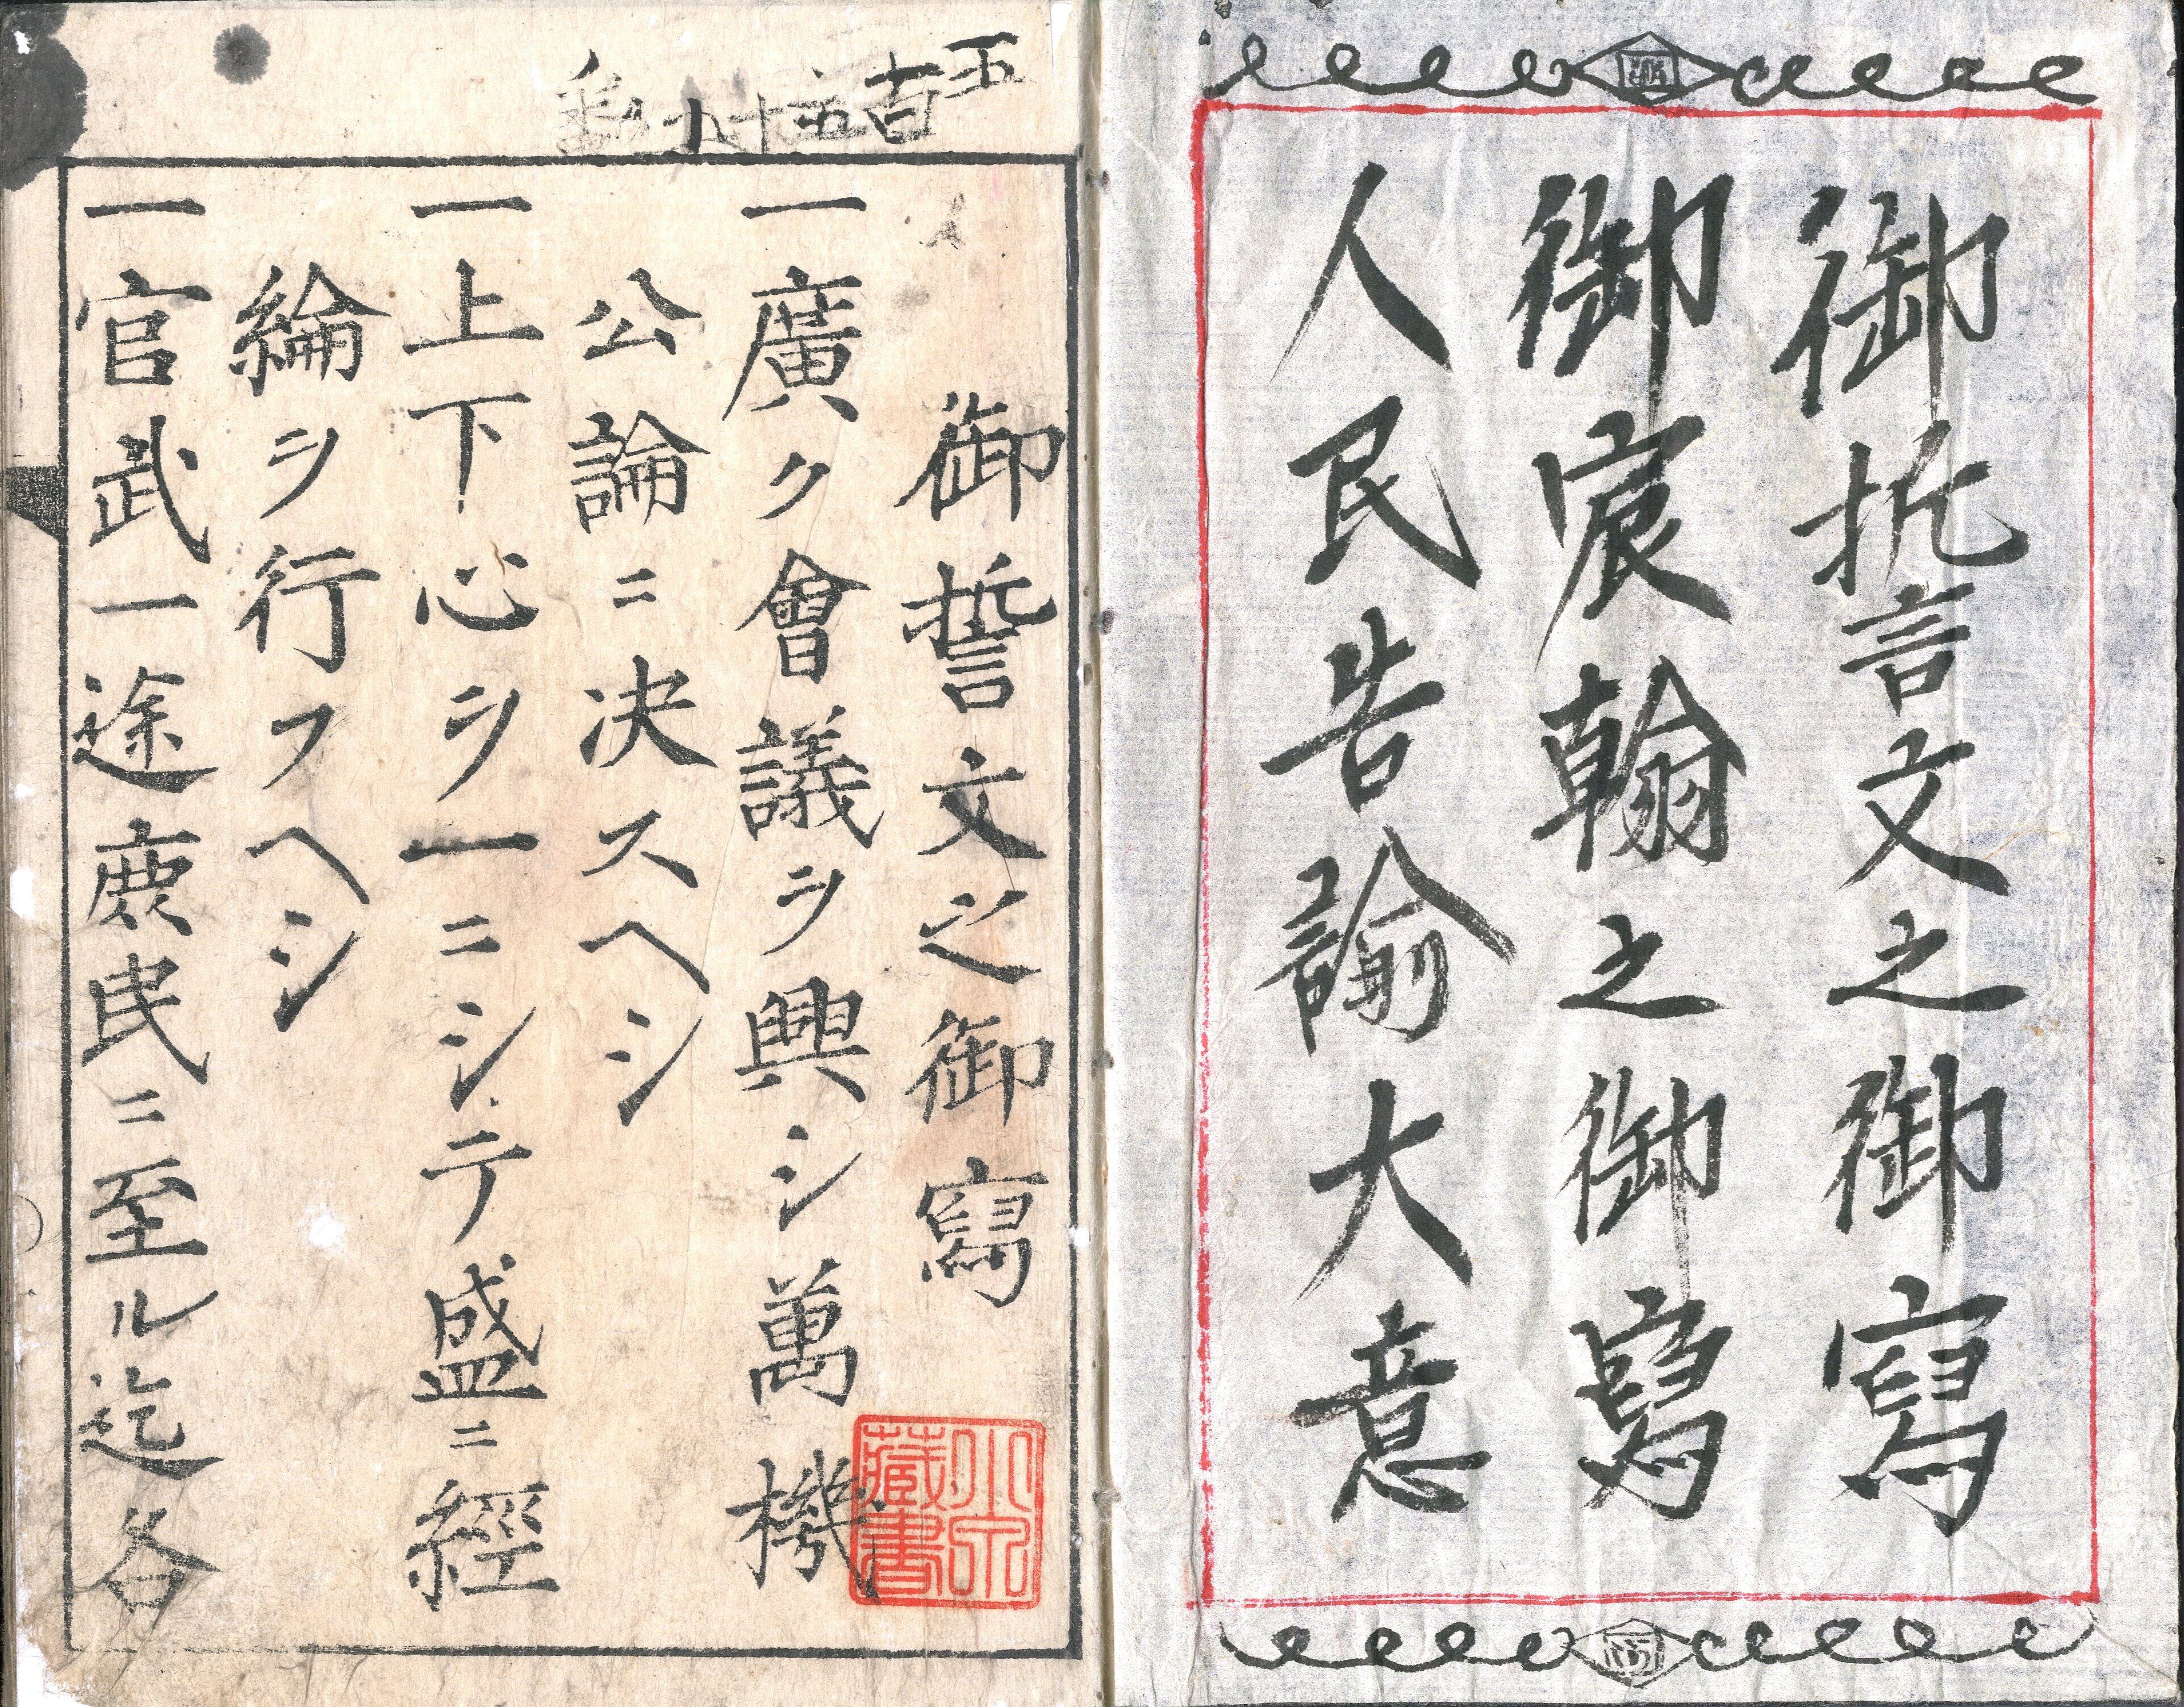 御誓文之御寫
御宸翰之御寫
人民告諭大意
五百五十九
御誓文之御寫
一廣ク會議ヲ興シ萬機
公論ニ决スヘシ
一上下心ヲ一ニシテ盛ニ經
綸ヲ行フヘシ
一官武一途庶民ニ至ル迄各
藏書